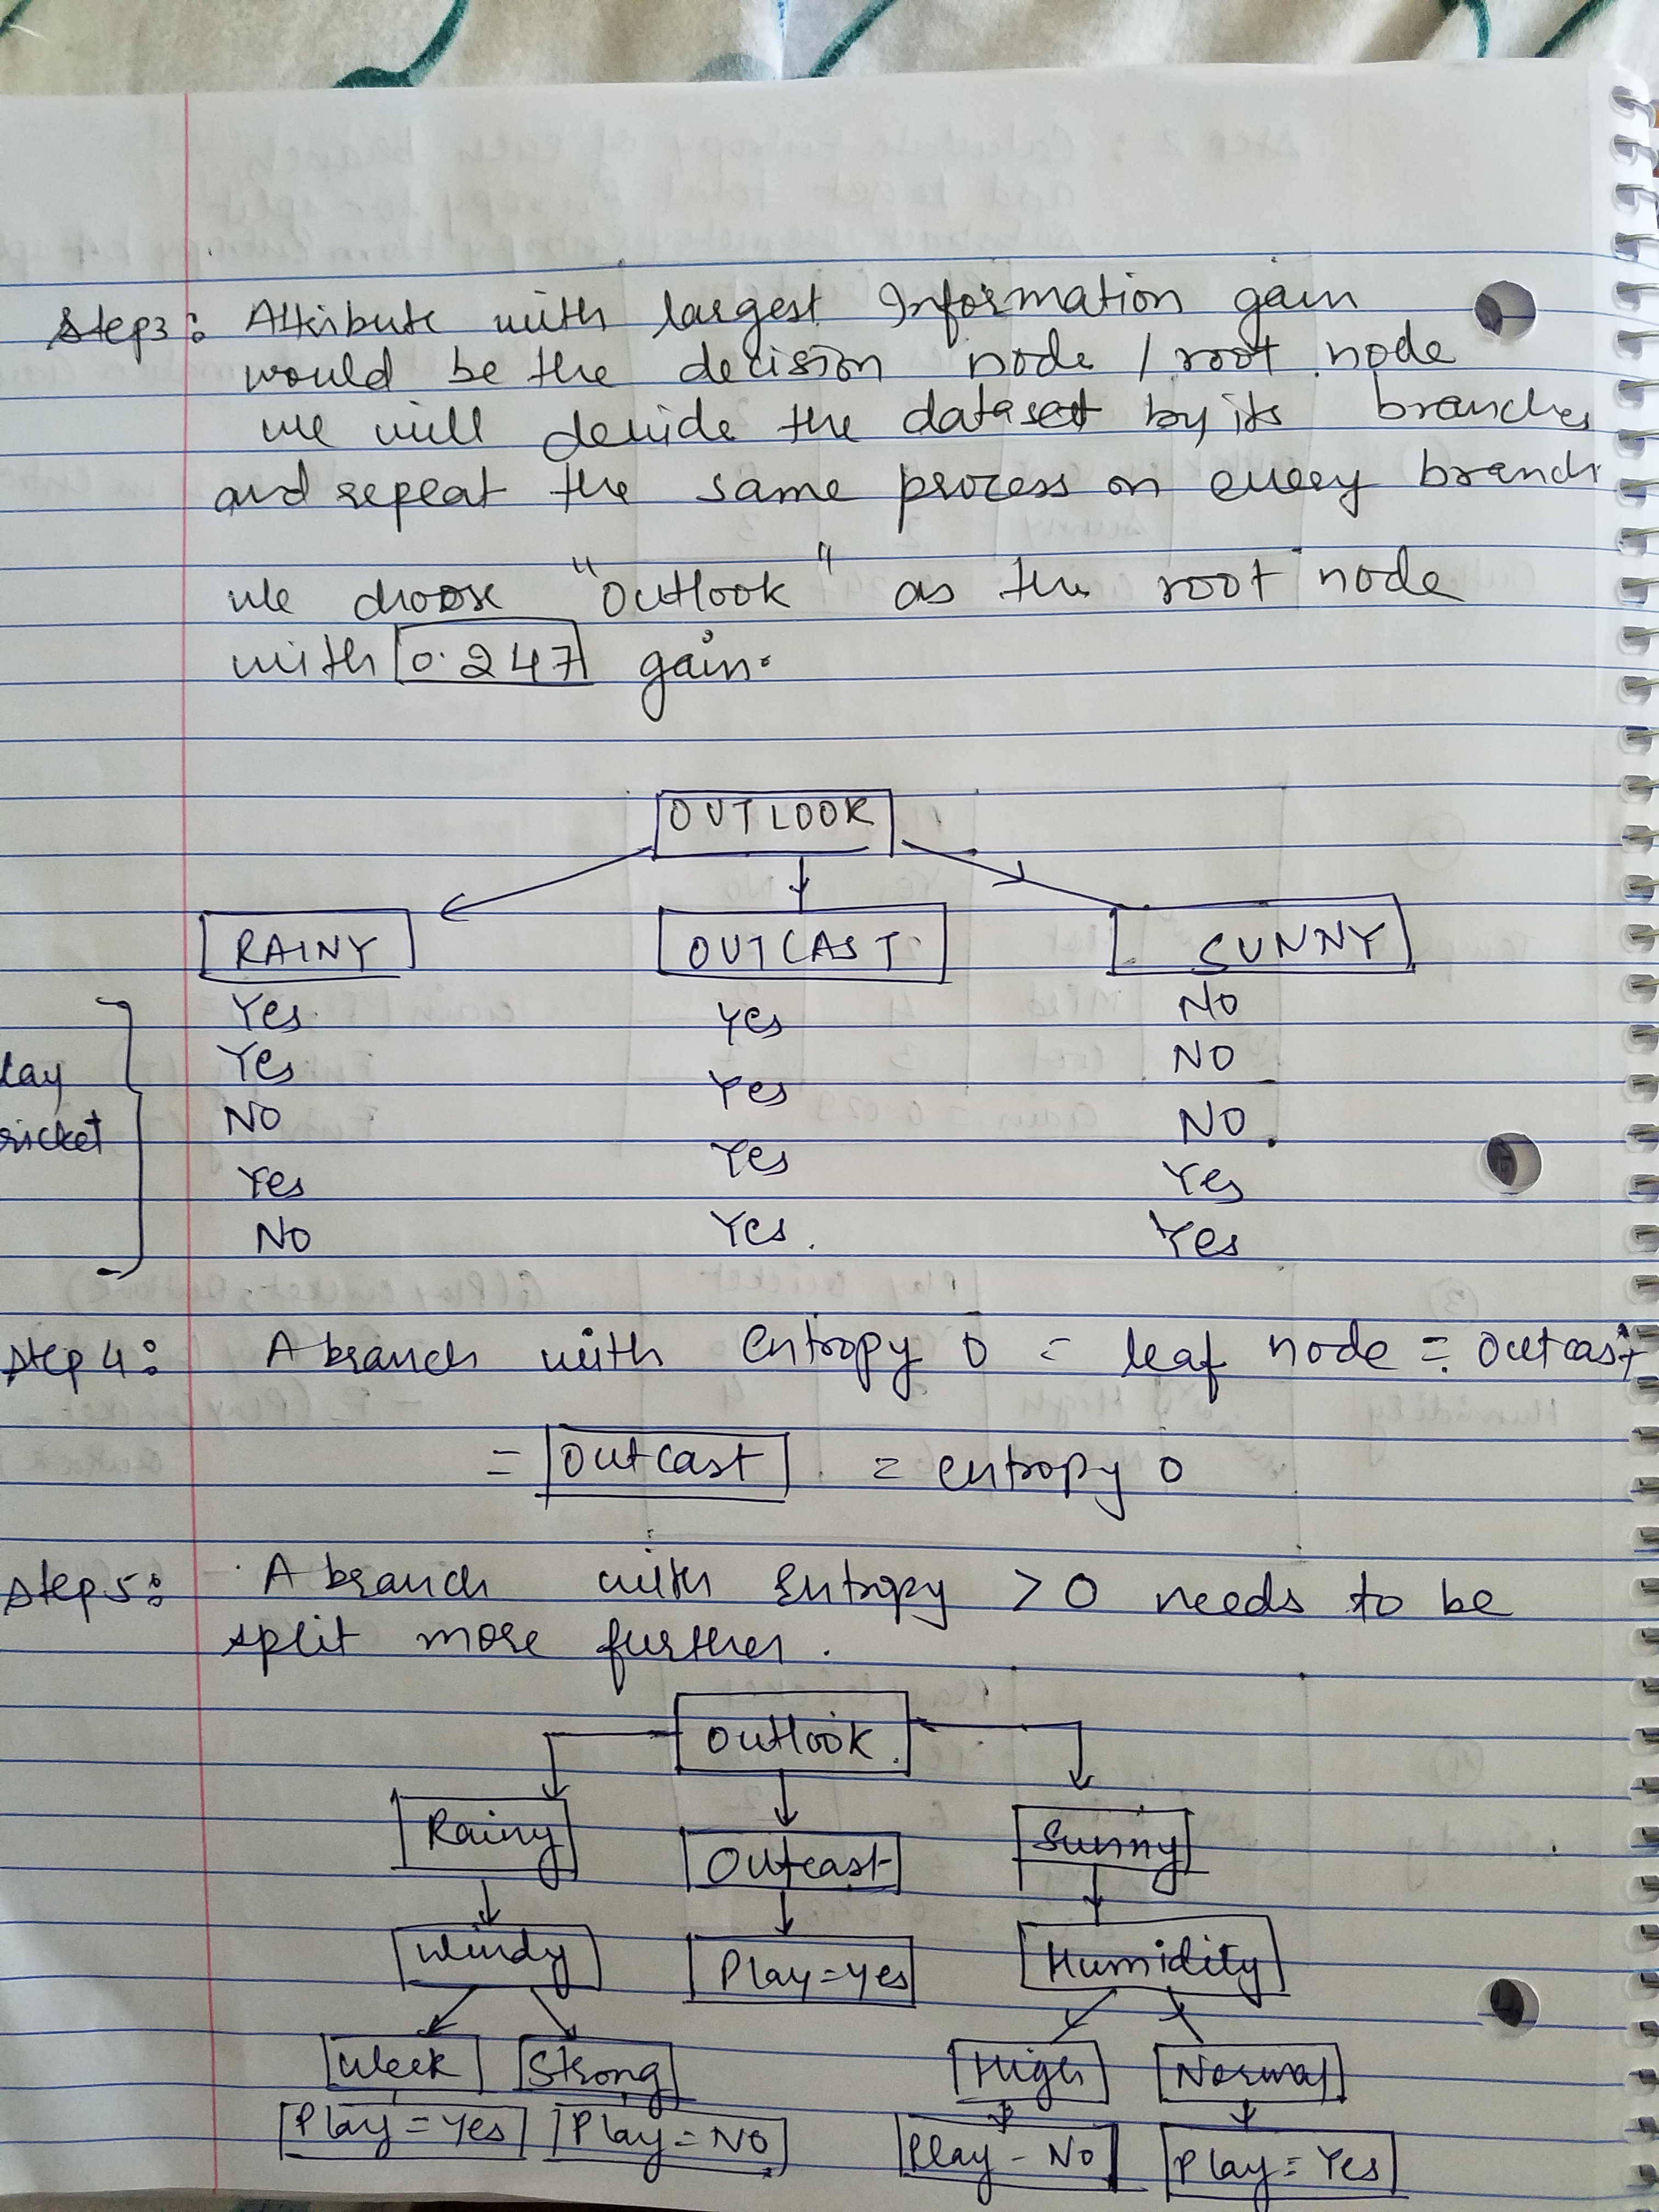 Step3: Attribute with largest Information gain
would be the decision node / root node
we will devide the dataset by its branches
and repeat the same process on every branch
we choose "Outlook" as the root node
with 0.247 gain.
OUTLOOK
RAINY OUTCAST SUNNY
Yes Yes No
Yes Yes NO
NO Yes NO
Yes Yes Yes
NO Yes
lay
ricket
Step 4: A branch with Entropy 0 = leaf node = outcast
= outcast = entropy 0
Step 5: A branch with Entropy > 0 needs to be
split more further.
Outlook
Rainy Outcast Sunny
Windy Play=Yes Humidity
Week Strong High Normal
Play=Yes Play=NO Play-No Play=Yes